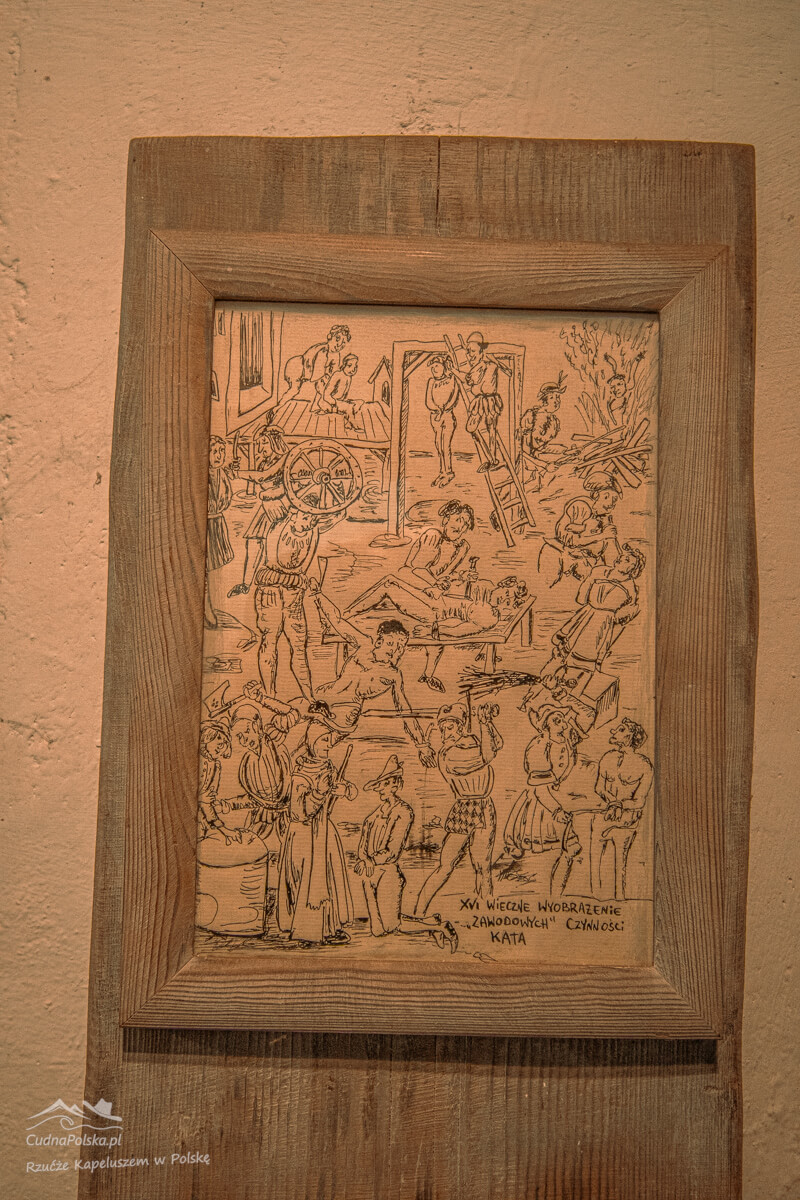 XVI WIECZNE WYOBRAŻENIE
„ZAWODOWYCH" CZYNNOŚCI
KATA
CudnaPolska.pl
Rzućże Kapeluszem w Polskę